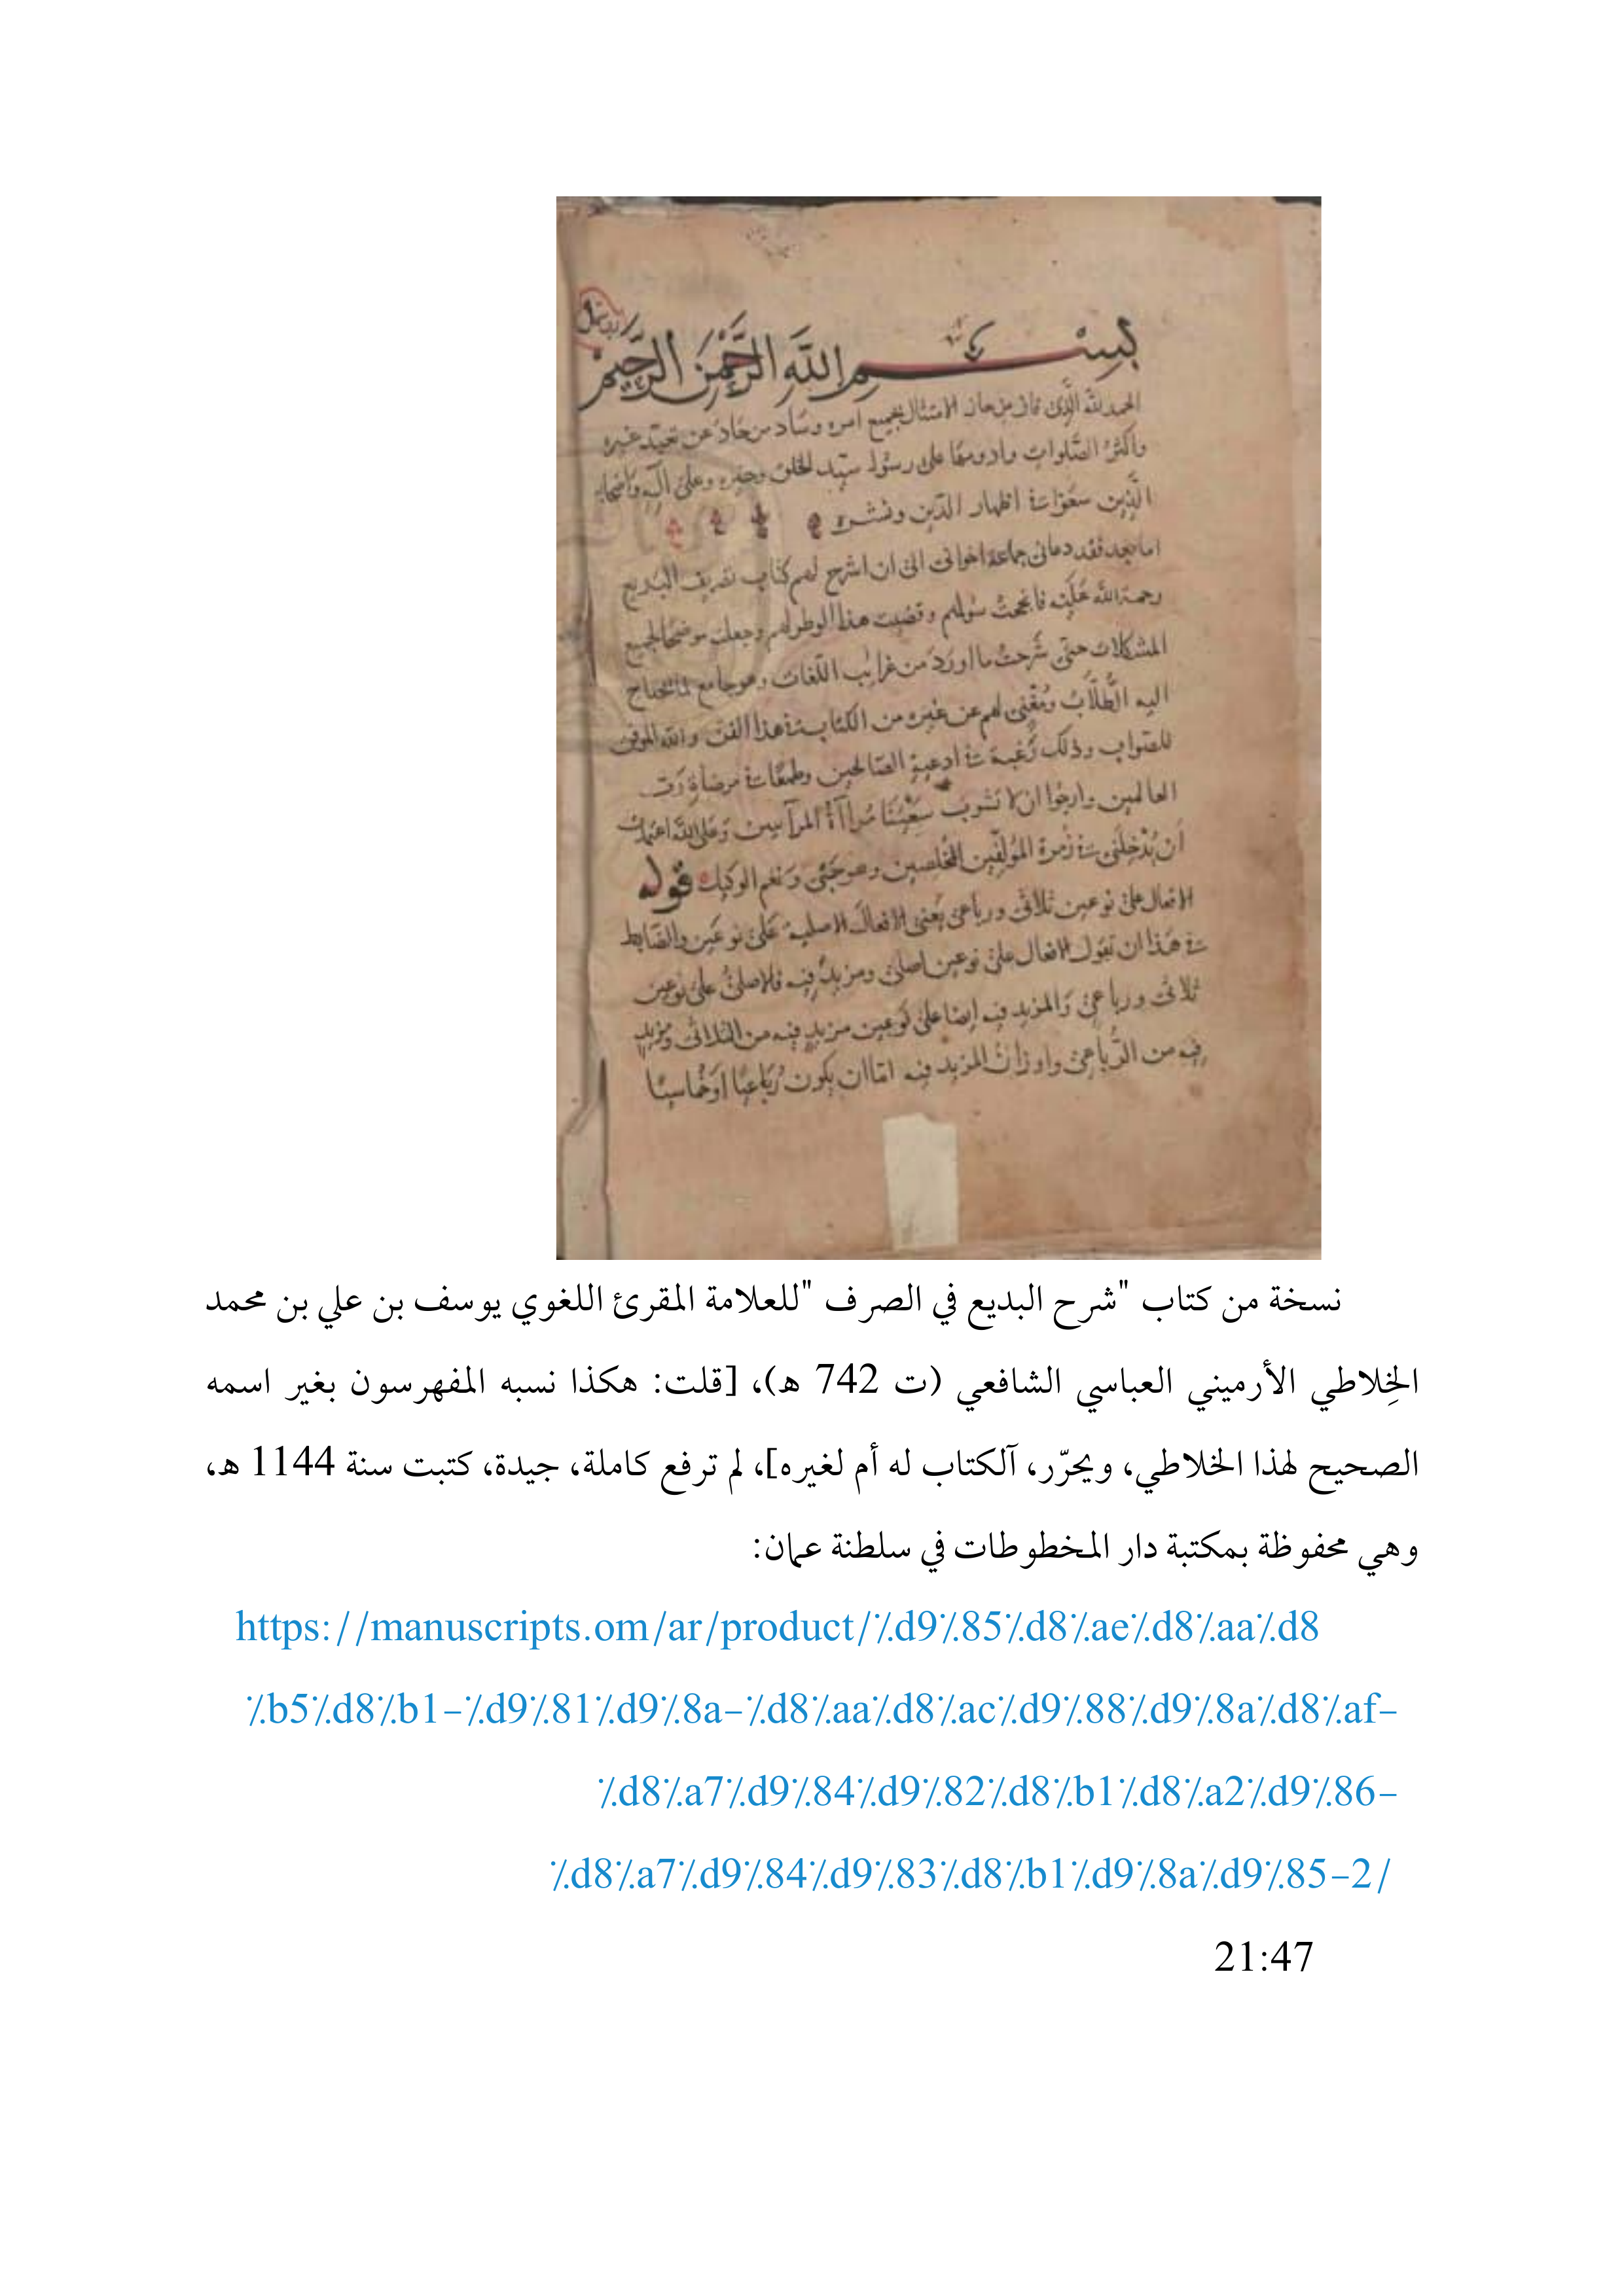 بسم الله الرحمن الرحيم
الحمد لله الذي من حاز الامتثال بجميع امره وساد من حاد عن تعبد غيره
واكثر الصلوات وادومها على رسوله سيد الخلق وعلى آله واصحابه
الذين سعوا في اظهار الدين ونشره
اما بعد فقد دعاني جماعة اخواني الى ان اشرح لهم كتاب تصريف البديع
رحمة الله عليه فانجحت سولهم وقضيت هذا الوطر لهم وجعلت موضحا لجميع
المشكلات حتى شرحت ما اورد من غرايب اللغات وهو جامع لما تحتاج
اليه الطلاب ومغني لهم عن غيره من الكتاب في هذا الفن والله الموفق
للصواب وذلك رغبة في ادعية الصالحين وطمعا في مرضاة رب
العالمين وارجوا ان لا تشوب سعينا مراآة المرآيين وعلى الله اعتمادي
أن يدخلني في زمرة المؤلفين المخلصين وهو حسبي ونعم الوكيل قوله
الافعال على نوعين ثلاثي ورباعي يعني الافعال الاصلية على نوعين والضابط
في هذا ان تقول الافعال على نوعين اصلي ومزيد فيه فالاصلي على نوعين
ثلاثي ورباعي والمزيد فيه ايضا على نوعين مزيد فيه من الثلاثي ومزيد
فيه من الرباعي واوزان المزيد فيه اما ان يكون رباعيا او خماسيا
نسخة من كتاب "شرح البديع في الصرف "للعلامة المقرئ اللغوي يوسف بن علي بن محمد
الخِلاطي الأرميني العباسي الشافعي (ت 742 هـ)، [قلت: هكذا نسبه المفهرسون بغير اسمه
الصحيح لهذا الخلاطي، ويحرّر، آلكتاب له أم لغيره]، لم ترفع كاملة، جيدة، كتبت سنة 1144 هـ،
وهي محفوظة بمكتبة دار المخطوطات في سلطنة عمان:
https://manuscripts.om/ar/product/%d9%85%d8%ae%d8%aa%d8
%b5%d8%b1-%d9%81%d9%8a-%d8%aa%d8%ac%d9%88%d9%8a%d8%af-
%d8%a7%d9%84%d9%82%d8%b1%d8%a2%d9%86-
%d8%a7%d9%84%d9%83%d8%b1%d9%8a%d9%85-2/
21:47